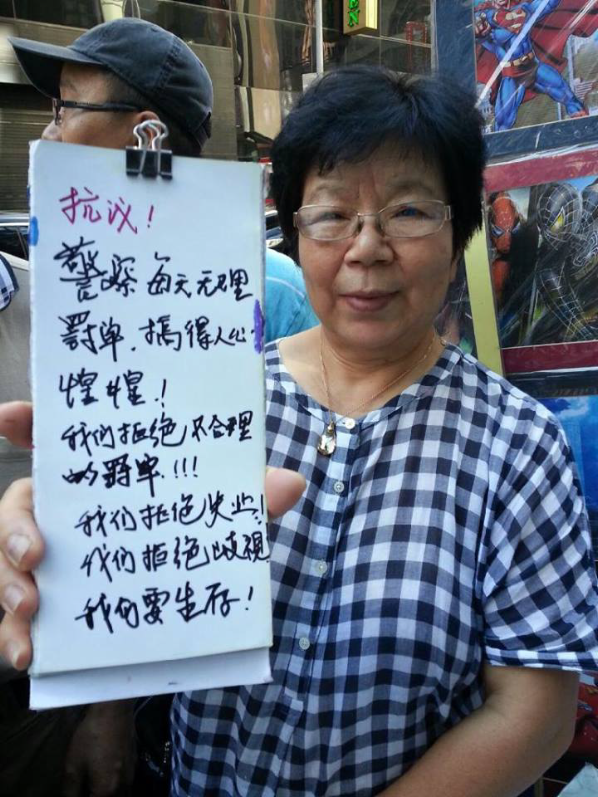 EN
抗议!
警察每天无理
罚单.搞得人心
惶惶!
我们拒绝不合理
的罚单!!!
我们拒绝失业!
我们拒绝歧視
我们要生存!